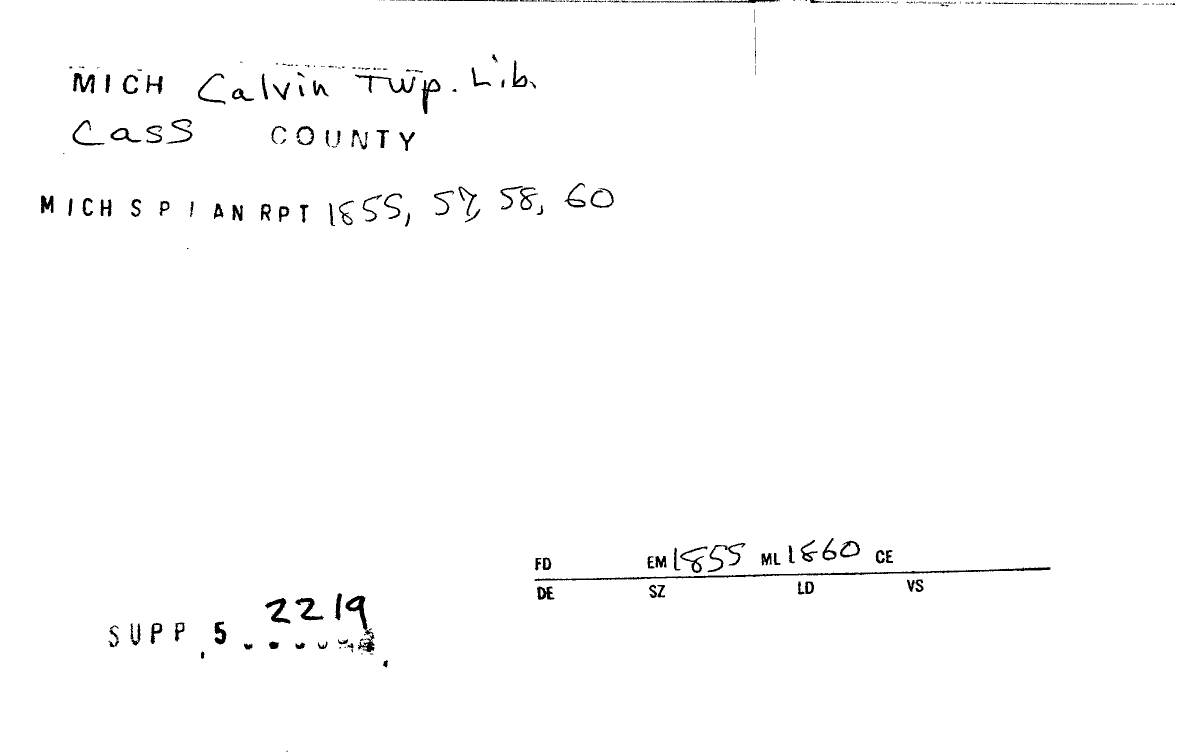 MICH Calvin Twp. Lib.
Cass COUNTY
MICH S P I AN RPT 1855, 57, 58, 60
FD EM 1855 ML 1860 CE
DE SZ LD VS
2219
SUPP 5